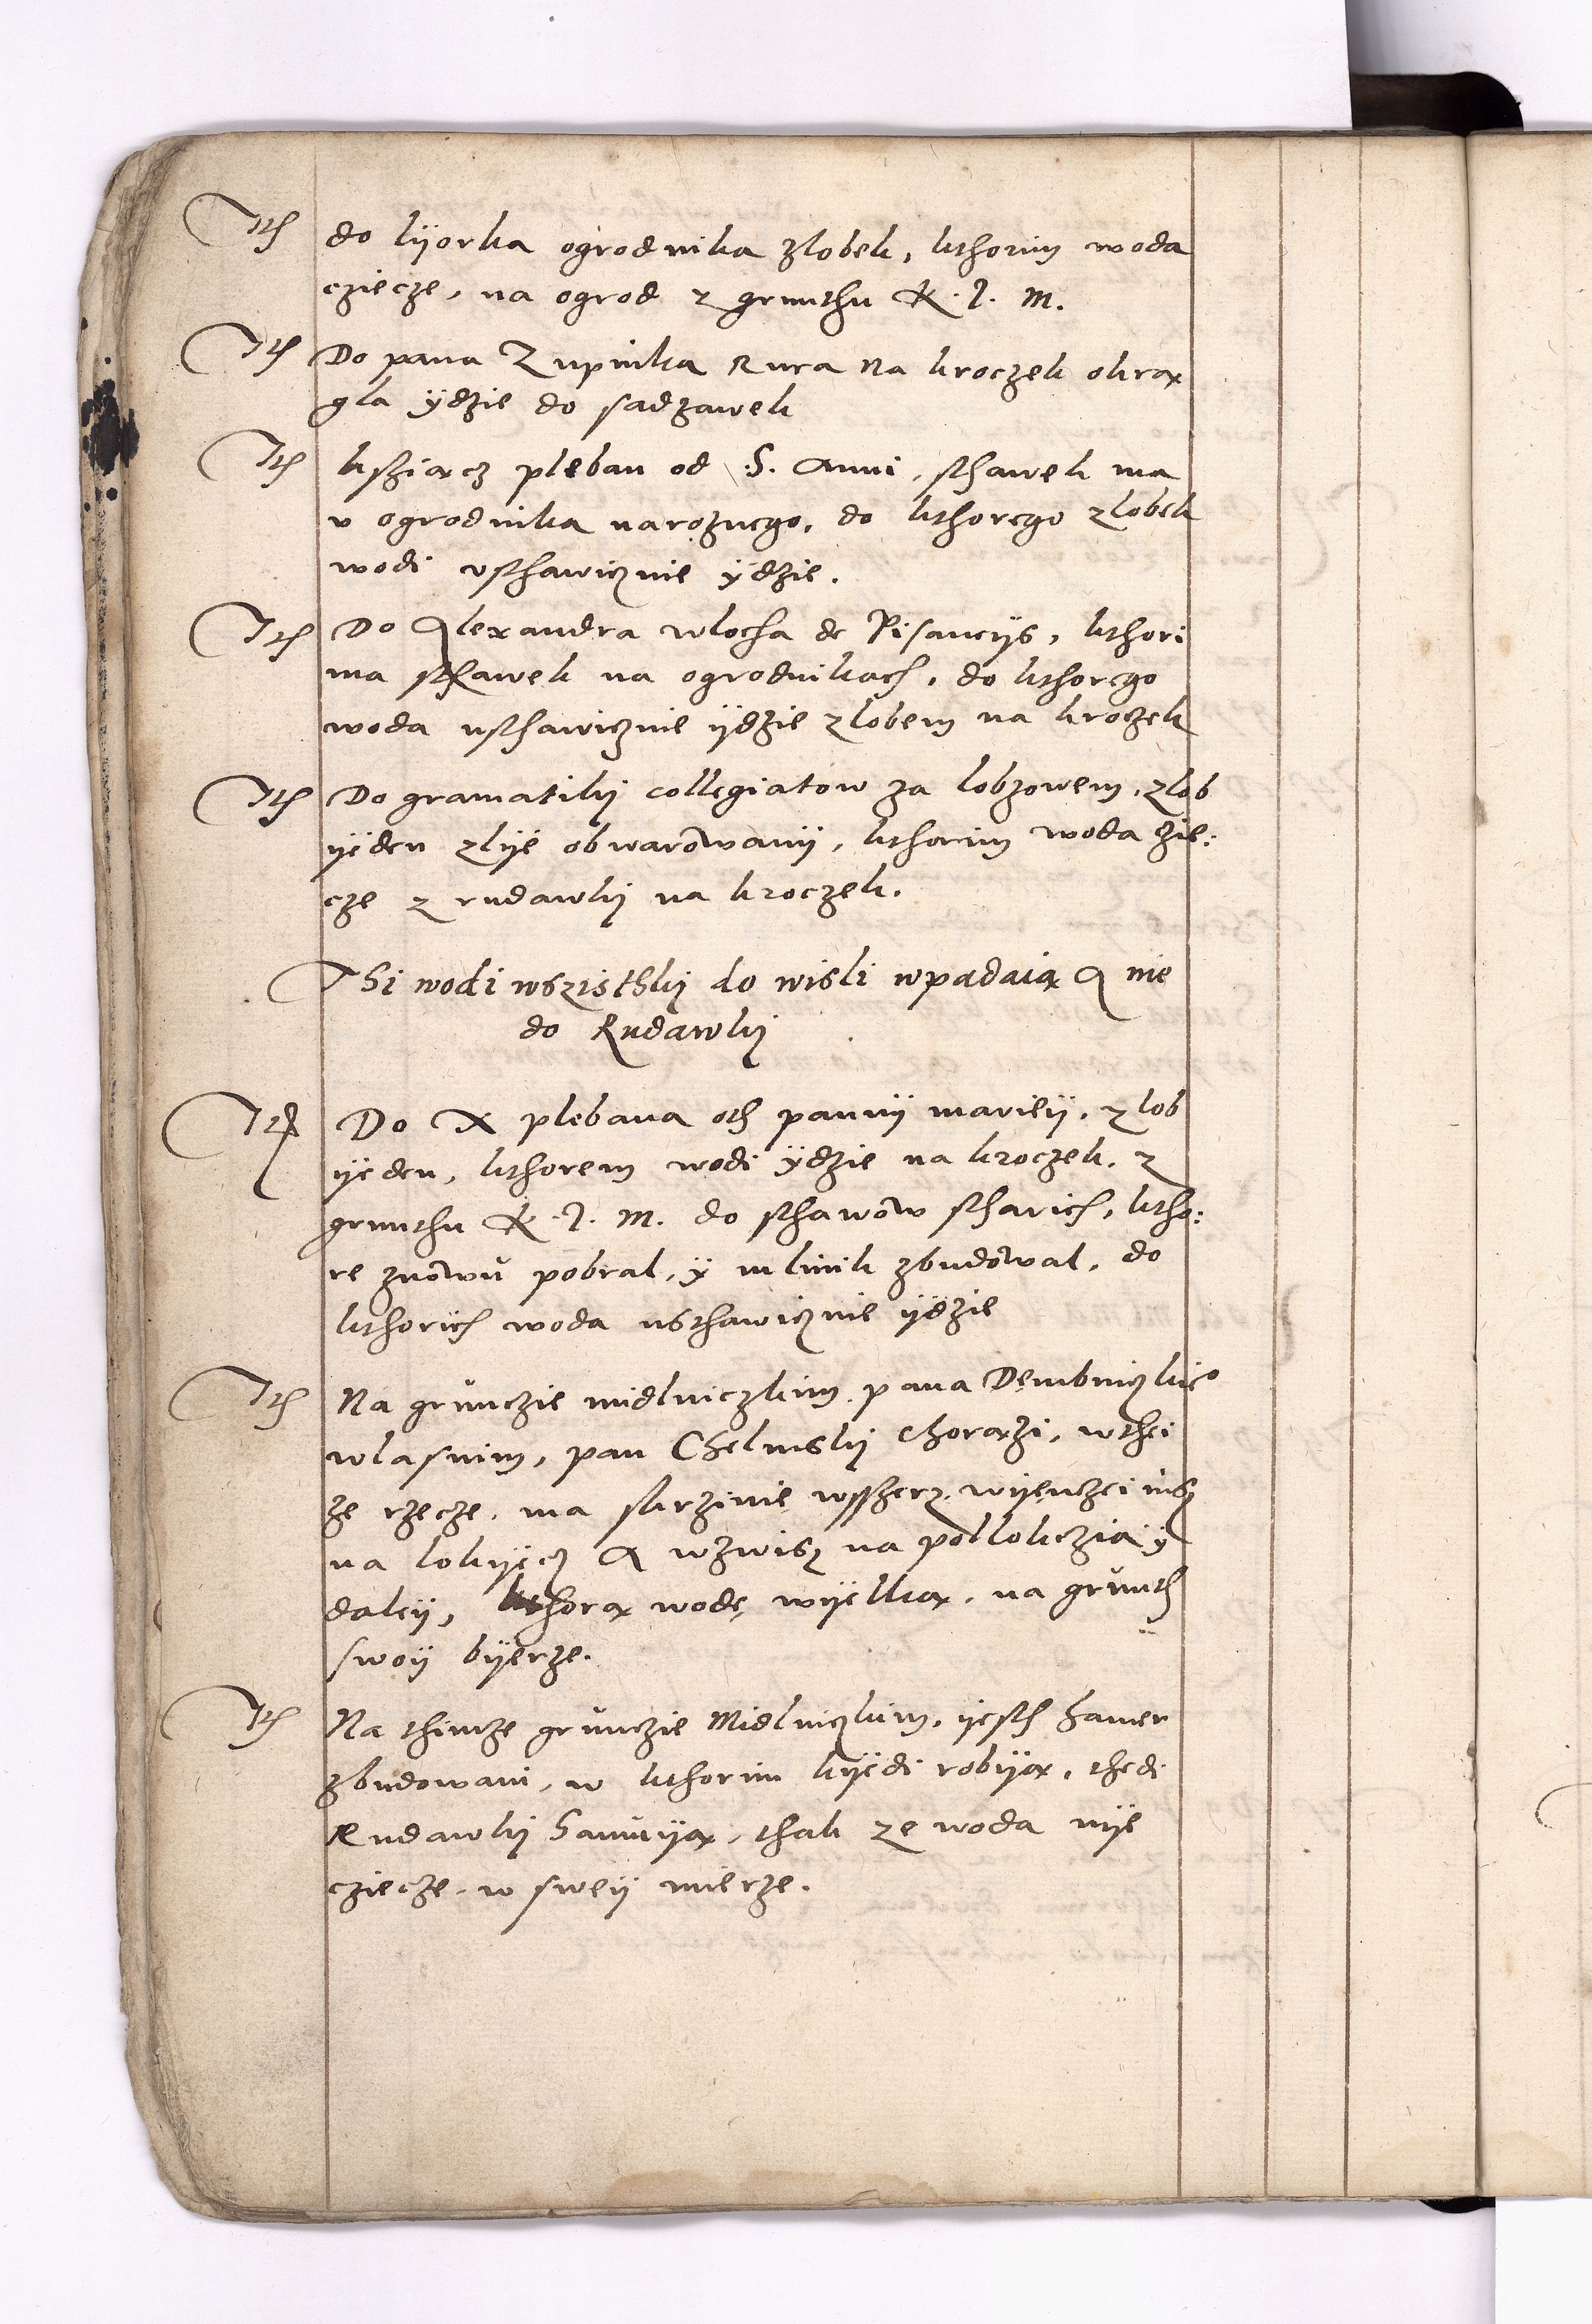 Ith do kÿorka ogrodnika zlobek, kthorim woda
cziecze, na ogrod z grunthu K. J. M.
Ith Do pana Zupnika Rura na kroczek okrą
gla ÿdzie do sadzawek
Ith ksziącz pleban od .S. Anni, sthawek ma
v ogrodnika naroznego, do kthorego zlobek
wodi vsthawicznie ÿdzie.
Ith Do Alexandra wlocha de Pisancÿs, kthori
ma sthawek na ogrodnikach, do kthorego
woda usthawicznie ÿdzie zlobem na kroczek
Ith Do gramatikÿ collegiatow za lobzowem, zlob
ÿeden zlÿe obwarowanÿ, kthorim woda zie:
cze z rudawkÿ na kroczek.
Thi wodi wszisthkÿ do wisli wpadaią A nie
do Rudawkÿ
Ith Do X plebana oth pannÿ mariÿ, zlob
ÿeden, kthorem wodi ÿdzie na kroczek, z
grunthu K. J. M. do sthawow stharich, ktho:
re znowu pobral, ÿ mlinik zbudowal, do
kthorich woda usthawicznie ÿdzie
Ith Na grunczie mielniczkim pana Dembniczkie°
wlasnim, pan Chelmskÿ chorązi, w thei
ze rzecze, ma skrzinie wsszerz wÿenczei nisz
na lokÿecz A wzwisz na pollokczia ÿ
daleÿ, kthorą wodę wÿelką, na grunth
swoÿ bÿerze.
Ith Na thimze grunczie Mielniczkim, ÿesth hamer
zbudowani, w kthorim kÿedi robÿą, thedi
Rudawkÿ hamuÿą, thak ze woda nÿe
cziecze w sweÿ mierze.